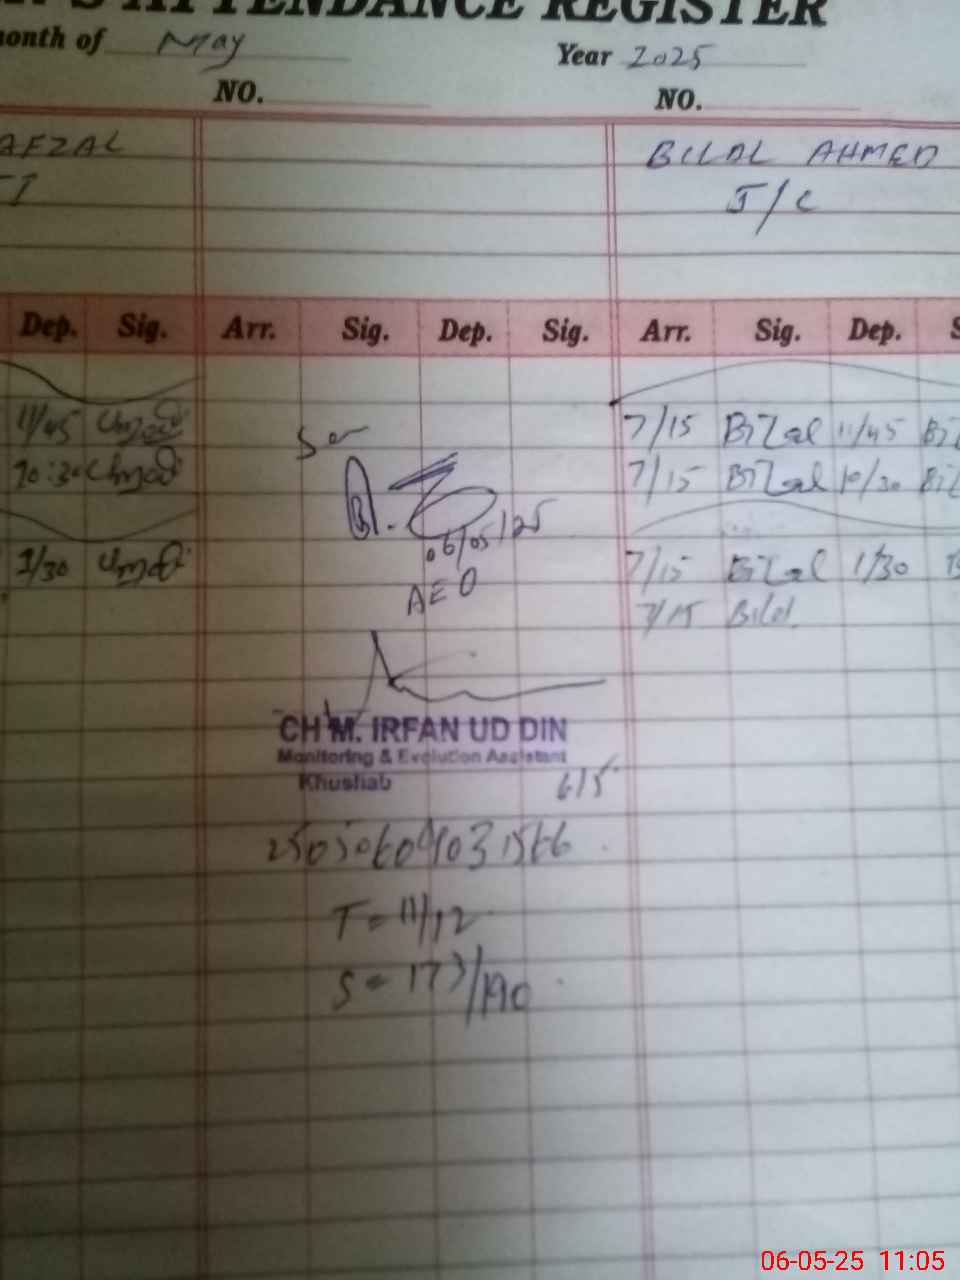 'S ATTENDANCE REGISTER
month of May Year 2025
NO. NO.
AFZAL BILAL AHMED
J/C
Dep. Sig. Arr. Sig. Dep. Sig. Arr. Sig. Dep. S
11/45 7/15 Bilal 11/45
10:30 7/15 Bilal 10/30
06/05/25
1/30 7/15 Bilal 1/30
AEO 7/15 Bilal
CH M. IRFAN UD DIN
Monitoring & Evolution Assistant
Khushab 6/5
T = 11/12
S = 173/190
06-05-25 11:05